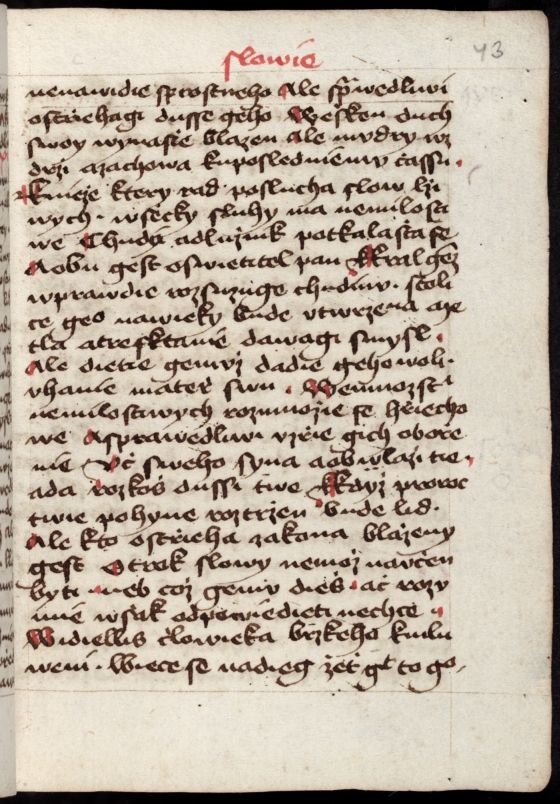 slowie
43
nenawidie sprostneho Ale sprwedliwi
ostrziehagi dusse geho Wessken duch
swoy wynasie blazen Ale mudry wz
drzi azachowa kuposledniemu czassu.
Knieze ktery rad poslucha slow lzi
wych. wsecky sluhy ma nemilosti
we Chudi adluznik potkalasta se
Aobu gest oswietitel pan Kral genz
wprawdie rozsuzuge chudinu. stoli
ce geo nawieky bude utwrzena aze
tla atresktanie dawagi smysl.
Ale dietie gemuz dadie geho woli.
uhanie materz swu. Wemnozstwi
nemilostiwych rozmnozie se hrziecho
we Asprawedliwi uzrzie gich obore
nie Ucz sweho syna aobwlazi tie.
ada rozkos dussi twe Kdyz proroc
twie pohyne roztrzen bude lid.
Ale kto ostrzieha zakona blazeny
gest Otrok slowy nemoz nauczen
byti neb coz gemu dies. acz rozu
mie wsak odpowiedieti nechce.
Widiellis czlowieka brzkeho kmlu
weni. Wiece se nadieg zet gt to go